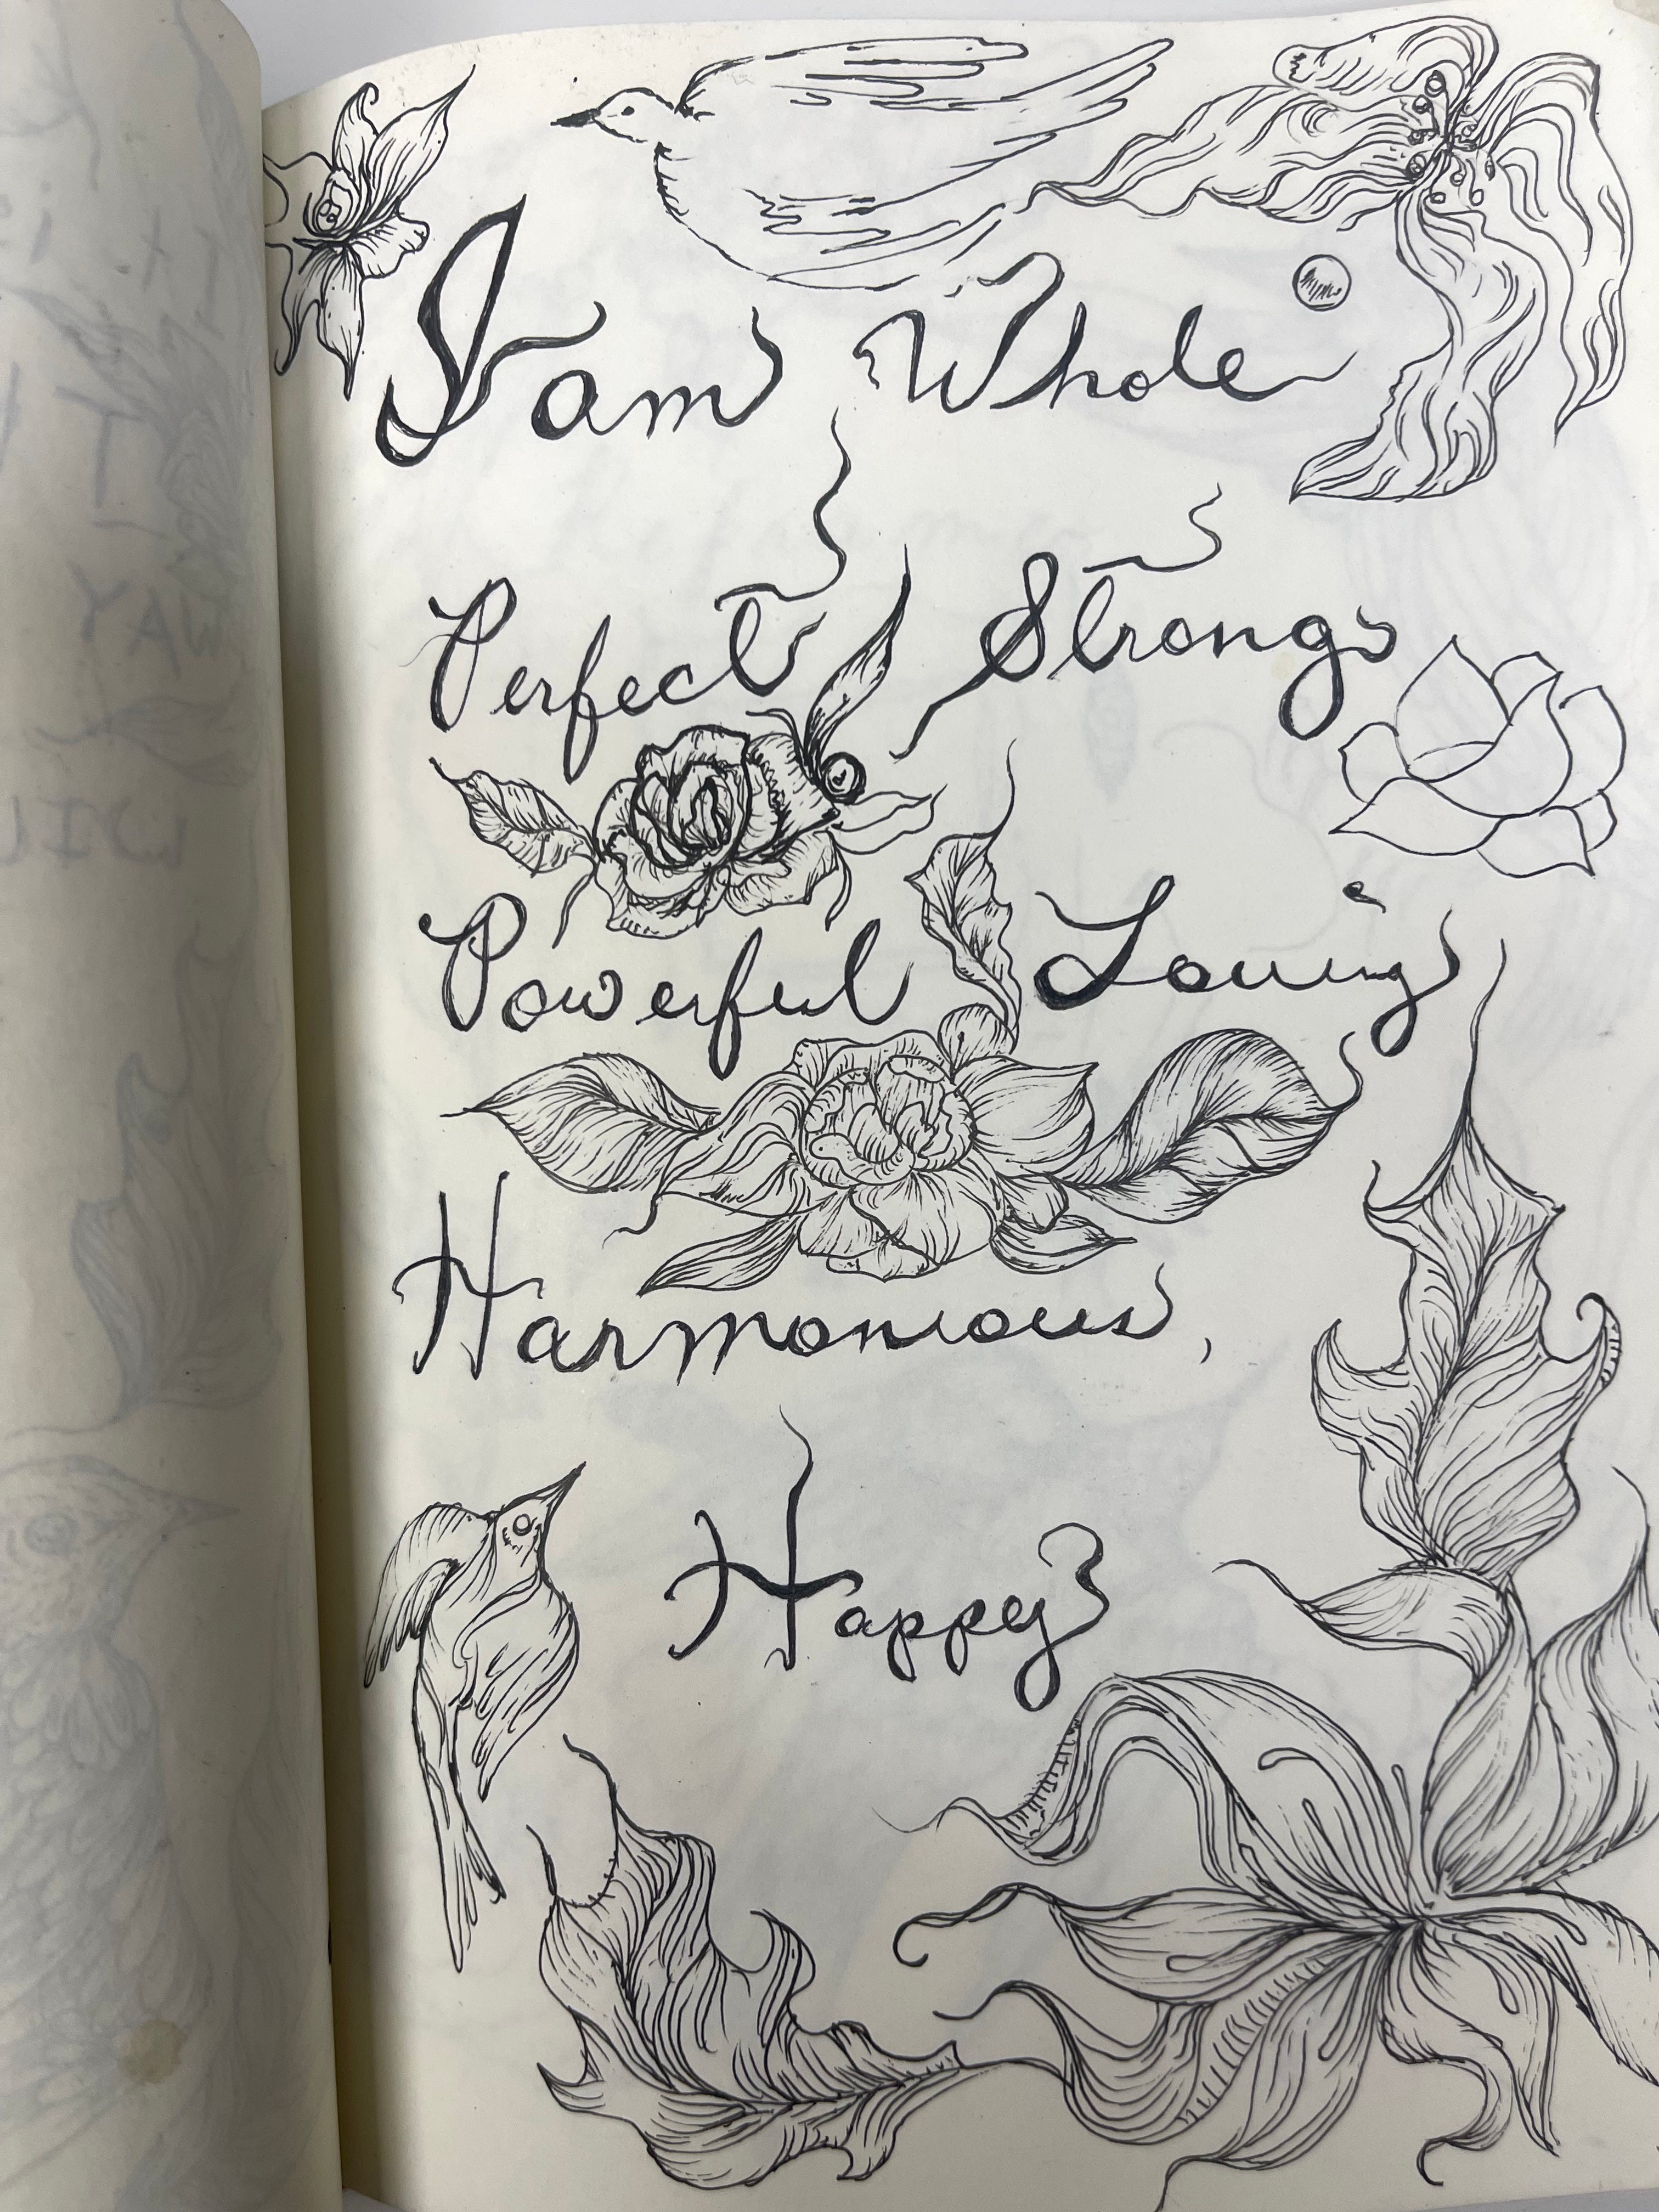 I am Whole
Perfect Strong
Powerful Loving
Harmonious,
Happy